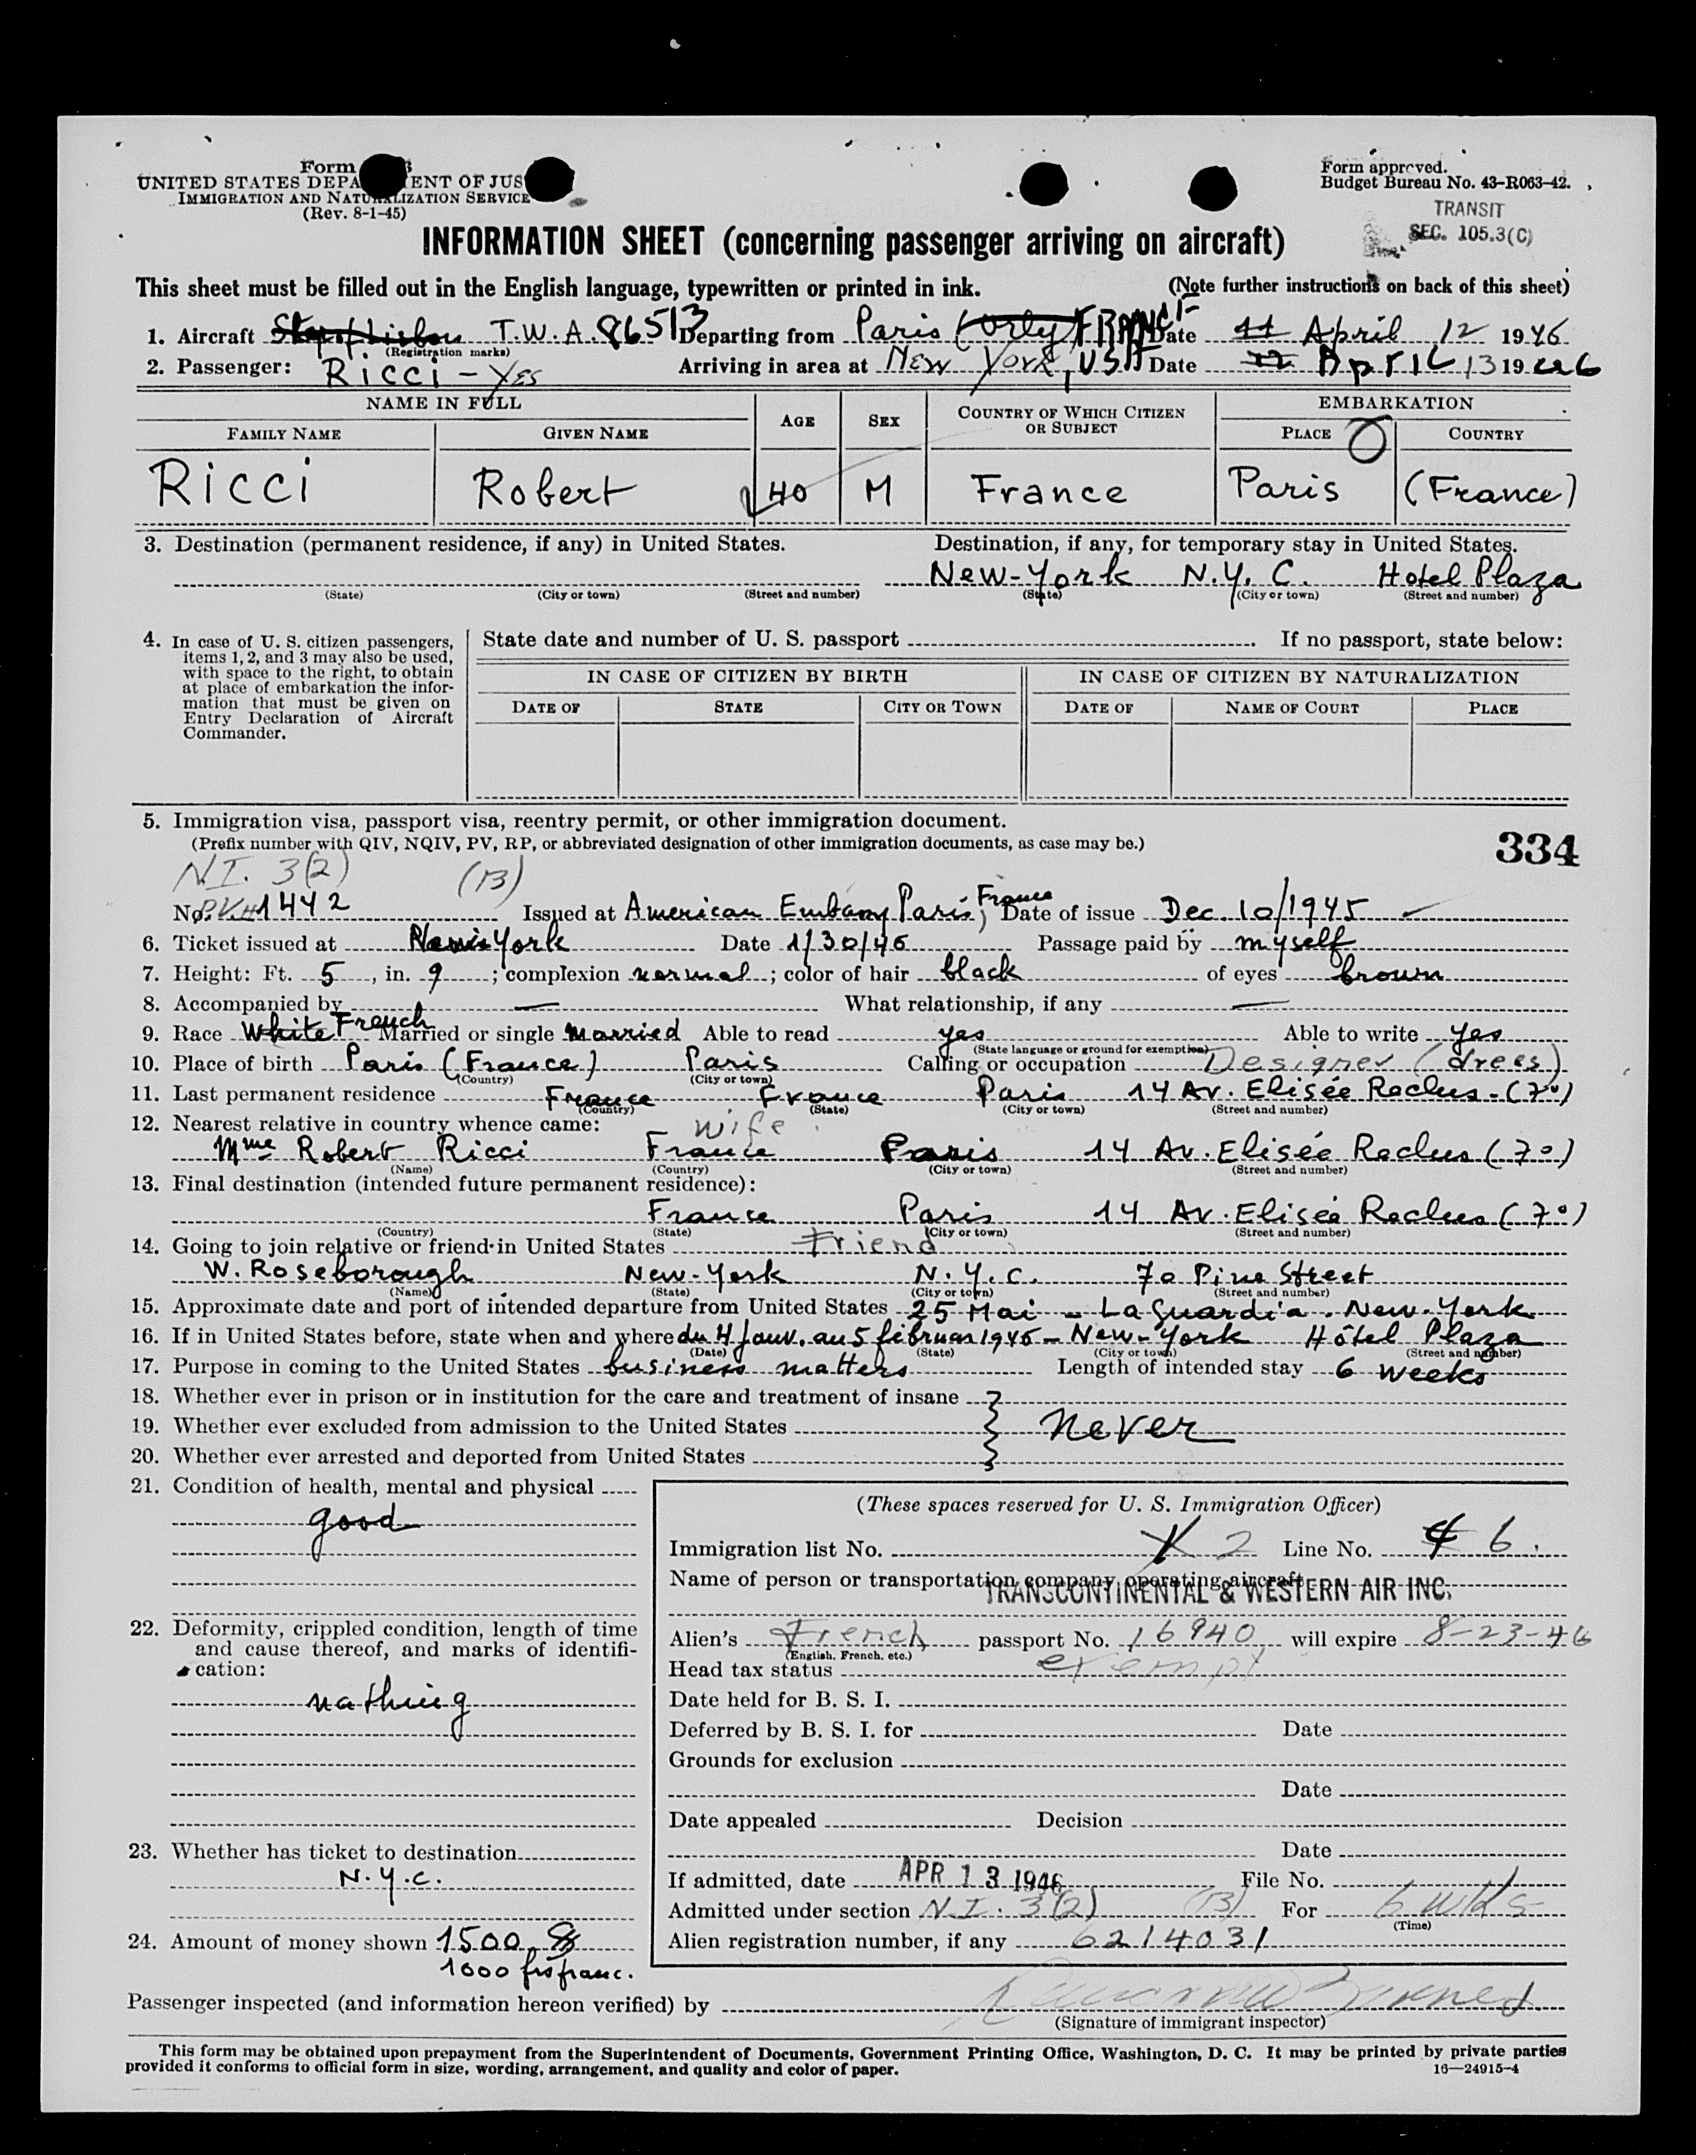 Form
UNITED STATES DEPA ENT OF JUS
IMMIGRATION AND NATURALIZATION SERVICE
(Rev. 8-1-45)
Form approved.
Budget Bureau No. 43-R063-42.
TRANSIT
SEC. 105.3(C)
INFORMATION SHEET (concerning passenger arriving on aircraft)
This sheet must be filled out in the English language, typewritten or printed in ink. (Note further instructions on back of this sheet)
1. Aircraft Star of Lisbon T.W.A. 86513 Departing from Paris (Orly) FRANCE Date 11 April 12 1946
(Registration marks)
2. Passenger: Ricci - Yes Arriving in area at New York, USA Date 12 April 13 1946
NAME IN FULL AGE SEX COUNTRY OF WHICH CITIZEN OR SUBJECT EMBARKATION
FAMILY NAME GIVEN NAME PLACE COUNTRY
Ricci Robert 40 M France Paris (France)
3. Destination (permanent residence, if any) in United States. Destination, if any, for temporary stay in United States.
New-York N.Y.C. Hotel Plaza
(State) (City or town) (Street and number) (State) (City or town) (Street and number)
4. In case of U. S. citizen passengers, items 1, 2, and 3 may also be used, with space to the right, to obtain at place of embarkation the information that must be given on Entry Declaration of Aircraft Commander.
State date and number of U. S. passport If no passport, state below:
IN CASE OF CITIZEN BY BIRTH IN CASE OF CITIZEN BY NATURALIZATION
DATE OF STATE CITY OR TOWN DATE OF NAME OF COURT PLACE
5. Immigration visa, passport visa, reentry permit, or other immigration document.
(Prefix number with QIV, NQIV, PV, RP, or abbreviated designation of other immigration documents, as case may be.)
334
N.I. 3(2) (B)
No. P.V.# 1442 Issued at American Embassy Paris, France Date of issue Dec. 10/1945
6. Ticket issued at New-York Date 1/30/46 Passage paid by myself
7. Height: Ft. 5, in. 9; complexion normal; color of hair black of eyes brown
8. Accompanied by — What relationship, if any —
9. Race White French Married or single Married Able to read yes Able to write yes
(State language or ground for exemption)
10. Place of birth Paris (France) Paris Calling or occupation Designer (drees)
(Country) (City or town)
11. Last permanent residence France France Paris 14 Av. Elisée Reclus - (7º)
(Country) (State) (City or town) (Street and number)
12. Nearest relative in country whence came: wife
Mme Robert Ricci France Paris 14 Av. Elisée Reclus (7º)
(Name) (Country) (City or town) (Street and number)
13. Final destination (intended future permanent residence):
France Paris 14 Av. Elisée Reclus (7º)
(Country) (State) (City or town) (Street and number)
14. Going to join relative or friend in United States Friend
W. Roseborough New-York N.Y.C. 70 Pine Street
(Name) (State) (City or town) (Street and number)
15. Approximate date and port of intended departure from United States 25 Mai - La Guardia. New-York
16. If in United States before, state when and where du 4 Janv. au 5 februar 1946 - New-York Hôtel Plaza
(Date) (State) (City or town) (Street and number)
17. Purpose in coming to the United States business matters Length of intended stay 6 weeks
18. Whether ever in prison or in institution for the care and treatment of insane
19. Whether ever excluded from admission to the United States never
20. Whether ever arrested and deported from United States
21. Condition of health, mental and physical
good
22. Deformity, crippled condition, length of time and cause thereof, and marks of identification:
nathing
23. Whether has ticket to destination
N.Y.C.
24. Amount of money shown 1500 $
1000 frs franc.
(These spaces reserved for U. S. Immigration Officer)
Immigration list No. 2 Line No. 6
Name of person or transportation company operating aircraft
TRANSCONTINENTAL & WESTERN AIR INC.
Alien's French passport No. 16940 will expire 8-23-46
(English, French, etc.)
Head tax status exempt
Date held for B. S. I.
Deferred by B. S. I. for Date
Grounds for exclusion
Date
Date appealed Decision
Date
If admitted, date APR 13 1946 File No.
Admitted under section N.I. 3(2) (B) For 6 wks
(Time)
Alien registration number, if any 6214031
Passenger inspected (and information hereon verified) by
(Signature of immigrant inspector)
This form may be obtained upon prepayment from the Superintendent of Documents, Government Printing Office, Washington, D. C. It may be printed by private parties
provided it conforms to official form in size, wording, arrangement, and quality and color of paper.
16—24915-4